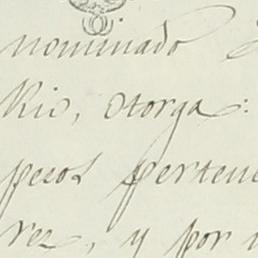 nominado
Rio, otorga:
pesos pertene
rez, y por